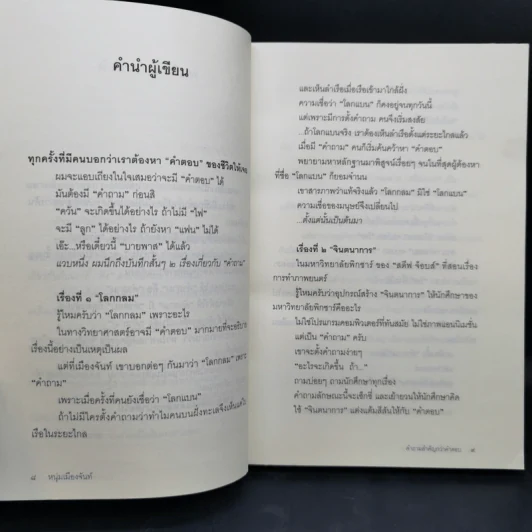 คำนำผู้เขียน
ทุกครั้งที่มีคนบอกว่าเราต้องหา “คำตอบ” ของชีวิตให้เจอ
ผมจะแอบเถียงในใจเสมอว่าจะมี “คำตอบ” ได้
มันต้องมี “คำถาม” ก่อนสิ
“ควัน” จะเกิดขึ้นได้อย่างไร ถ้าไม่มี “ไฟ”
จะมี “ลูก” ได้อย่างไร ถ้ายังหา “แฟน” ไม่ได้
เอ๊ะ...หรือเดี๋ยวนี้ “บายพาส” ได้แล้ว
แวบหนึ่ง ผมนึกถึงบันทึกสั้นๆ ๒ เรื่องเกี่ยวกับ “คำถาม”
เรื่องที่ ๑ “โลกกลม”
รู้ไหมครับว่า “โลกกลม” เพราะอะไร
ในทางวิทยาศาสตร์อาจมี “คำตอบ” มากมายที่จะอธิบาย
เรื่องนี้อย่างเป็นเหตุเป็นผล
แต่ที่เมืองจันท์ เขาบอกต่อๆ กันมาว่า “โลกกลม” เพราะ
“คำถาม”
เพราะเมื่อครั้งที่คนยังเชื่อว่า “โลกแบน”
ถ้าไม่มีใครตั้งคำถามว่าทำไมคนบนฝั่งทะเลจึงเห็นเสาใบ
เรือในระยะไกล
๘ หนุ่มเมืองจันท์
และเห็นลำเรือเมื่อเรือเข้ามาใกล้ฝั่ง
ความเชื่อว่า “โลกแบน” ก็คงอยู่จนทุกวันนี้
แต่เพราะมีการตั้งคำถาม คนจึงเริ่มสงสัย
...ถ้าโลกแบนจริง เราต้องเห็นลำเรือตั้งแต่ระยะไกลแล้ว
เมื่อมี “คำถาม” คนก็เริ่มค้นคว้าหา “คำตอบ”
พยายามหาหลักฐานมาพิสูจน์เรื่อยๆ จนในที่สุดผู้ต้องหา
ที่ชื่อ “โลกแบน” ก็ยอมจำนน
เขาสารภาพว่าแท้จริงแล้ว “โลกกลม” มิใช่ “โลกแบน”
ความเชื่อของมนุษย์จึงเปลี่ยนไป
...ตั้งแต่นั้นเป็นต้นมา
เรื่องที่ ๒ “จินตนาการ”
ในมหาวิทยาลัยพิกซาร์ ของ “สตีฟ จ๊อบส์” ที่สอนเรื่อง
การทำภาพยนตร์
รู้ไหมครับว่าอุปกรณ์สร้าง “จินตนาการ” ให้นักศึกษาของ
มหาวิทยาลัยพิกซาร์คืออะไร
ไม่ใช่โปรแกรมคอมพิวเตอร์ที่ทันสมัย ไม่ใช่ภาพแอนิเมชั่น
แต่เป็น “คำถาม” ครับ
เขาจะตั้งคำถามง่ายๆ
“อะไรจะเกิดขึ้น ถ้า...”
ถามบ่อยๆ ถามนักศึกษาทุกเรื่อง
คำถามลักษณะนี้จะเซ็กซี่ และเย้ายวนให้นักศึกษาคิด
ใช้ “จินตนาการ” แต่งแต้มสีสันให้กับ “คำตอบ”
คำถามสำคัญกว่าคำตอบ ๙